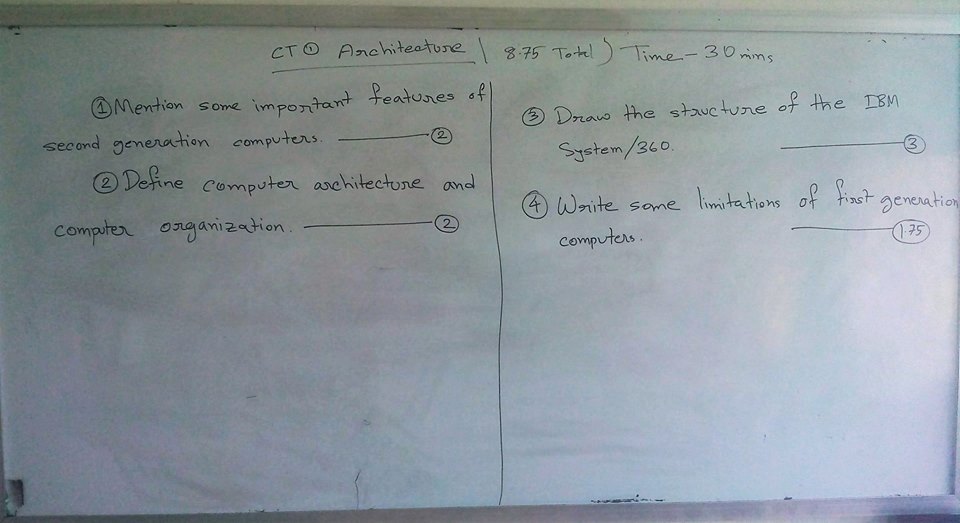 CT① Architecture | 8.75 Total) Time - 30 mins
① Mention some important features of
second generation computers. ——— ②
② Define computer architecture and
computer organization. ——— ②
③ Draw the structure of the IBM
System/360. ——— ③
④ Write some limitations of first generation
computers. ——— 1.75